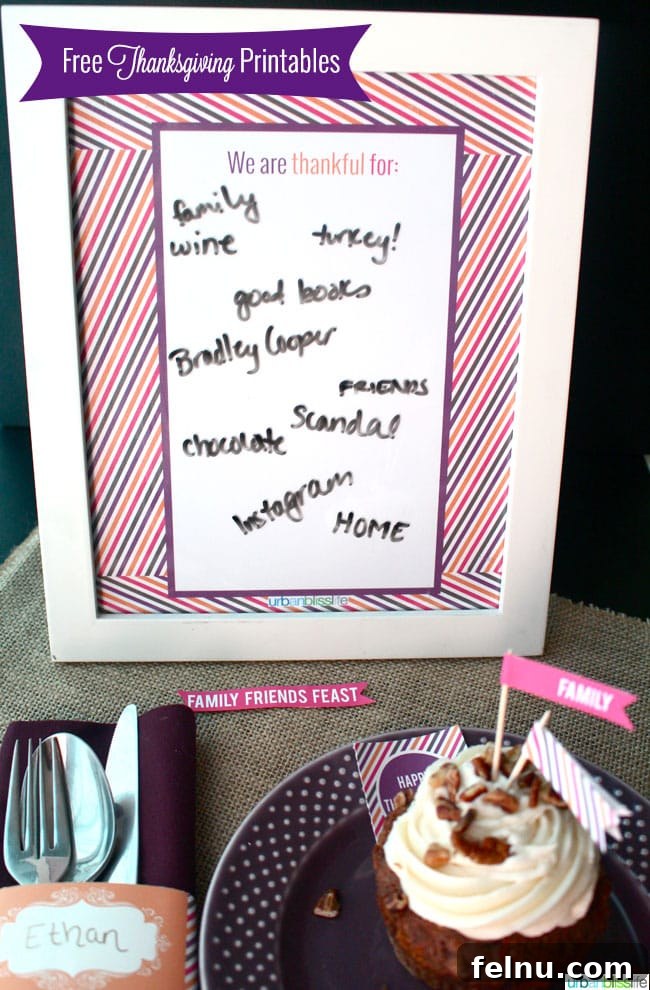 Free Thanksgiving Printables
We are thankful for:
family
wine
turkey!
good books
Bradley Cooper
FRIENDS
Scandal!
chocolate
Instagram
HOME
urbanblisslife
FAMILY FRIENDS FEAST
FAMILY
HAPPY
Ethan
felnu.com
urbanblisslife